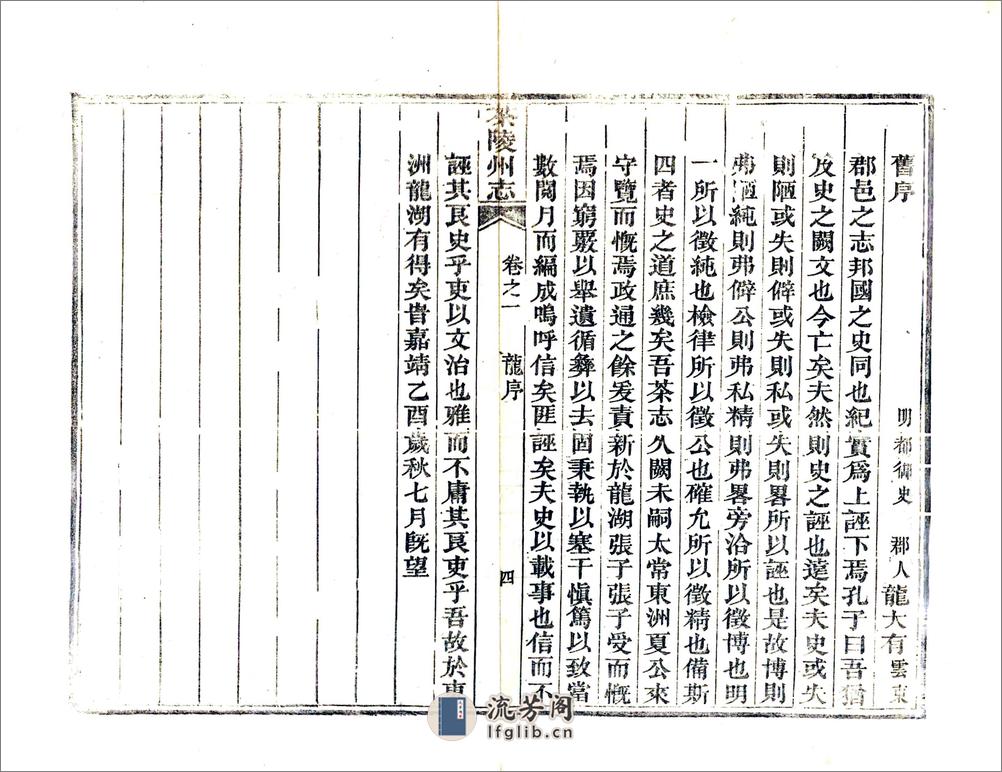 舊序
明都御史 郡人龍大有雲東
郡邑之志邦國之史同也紀實爲上誣下焉孔子曰吾猶
及史之闕文也今亡矣夫然則史之誣也遠矣夫史或失
則陋或失則僻或失則私或失則畧所以誣也是故博則
弗陋純則弗僻公則弗私精則弗畧旁洽所以徵博也明
一所以徵純也檢律所以徵公也確允所以徵精也備斯
四者史之道庶幾矣吾茶志久闕未嗣太常東洲夏公來
守覽而慨焉政通之餘爰責新於龍湖張子張子受而慨
焉因窮覈以舉遺循彝以去固秉執以塞干愼篤以致當
數閱月而編成嗚呼信矣匪誣矣夫史以載事也信而不
茶陵州志 卷之一 龍序 四
誣其良史乎吏以文治也雅而不庸其良吏乎吾故於東
洲龍湖有得矣旹嘉靖乙酉歲秋七月旣望
流芳阁
lfglib.cn